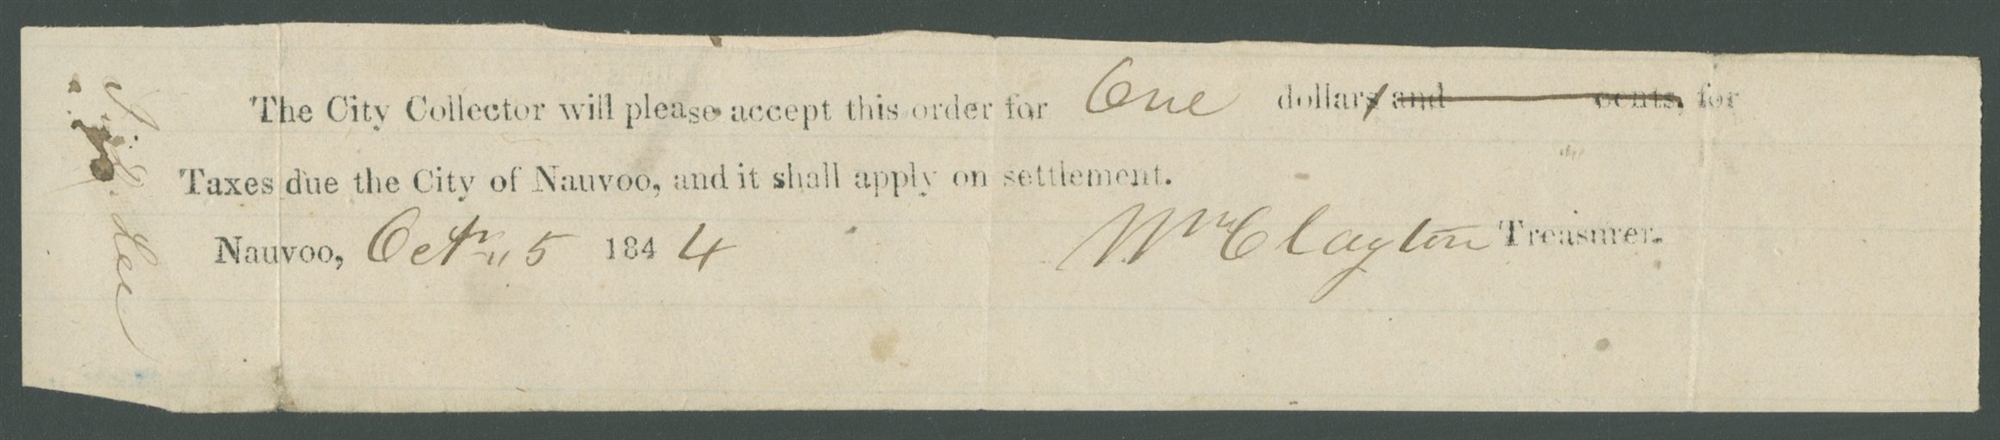 The City Collector will please accept this order for One dollar and cents, for
Taxes due the City of Nauvoo, and it shall apply on settlement.
Nauvoo, Octr 5 1844 Wm Clayton Treasurer.
Lee